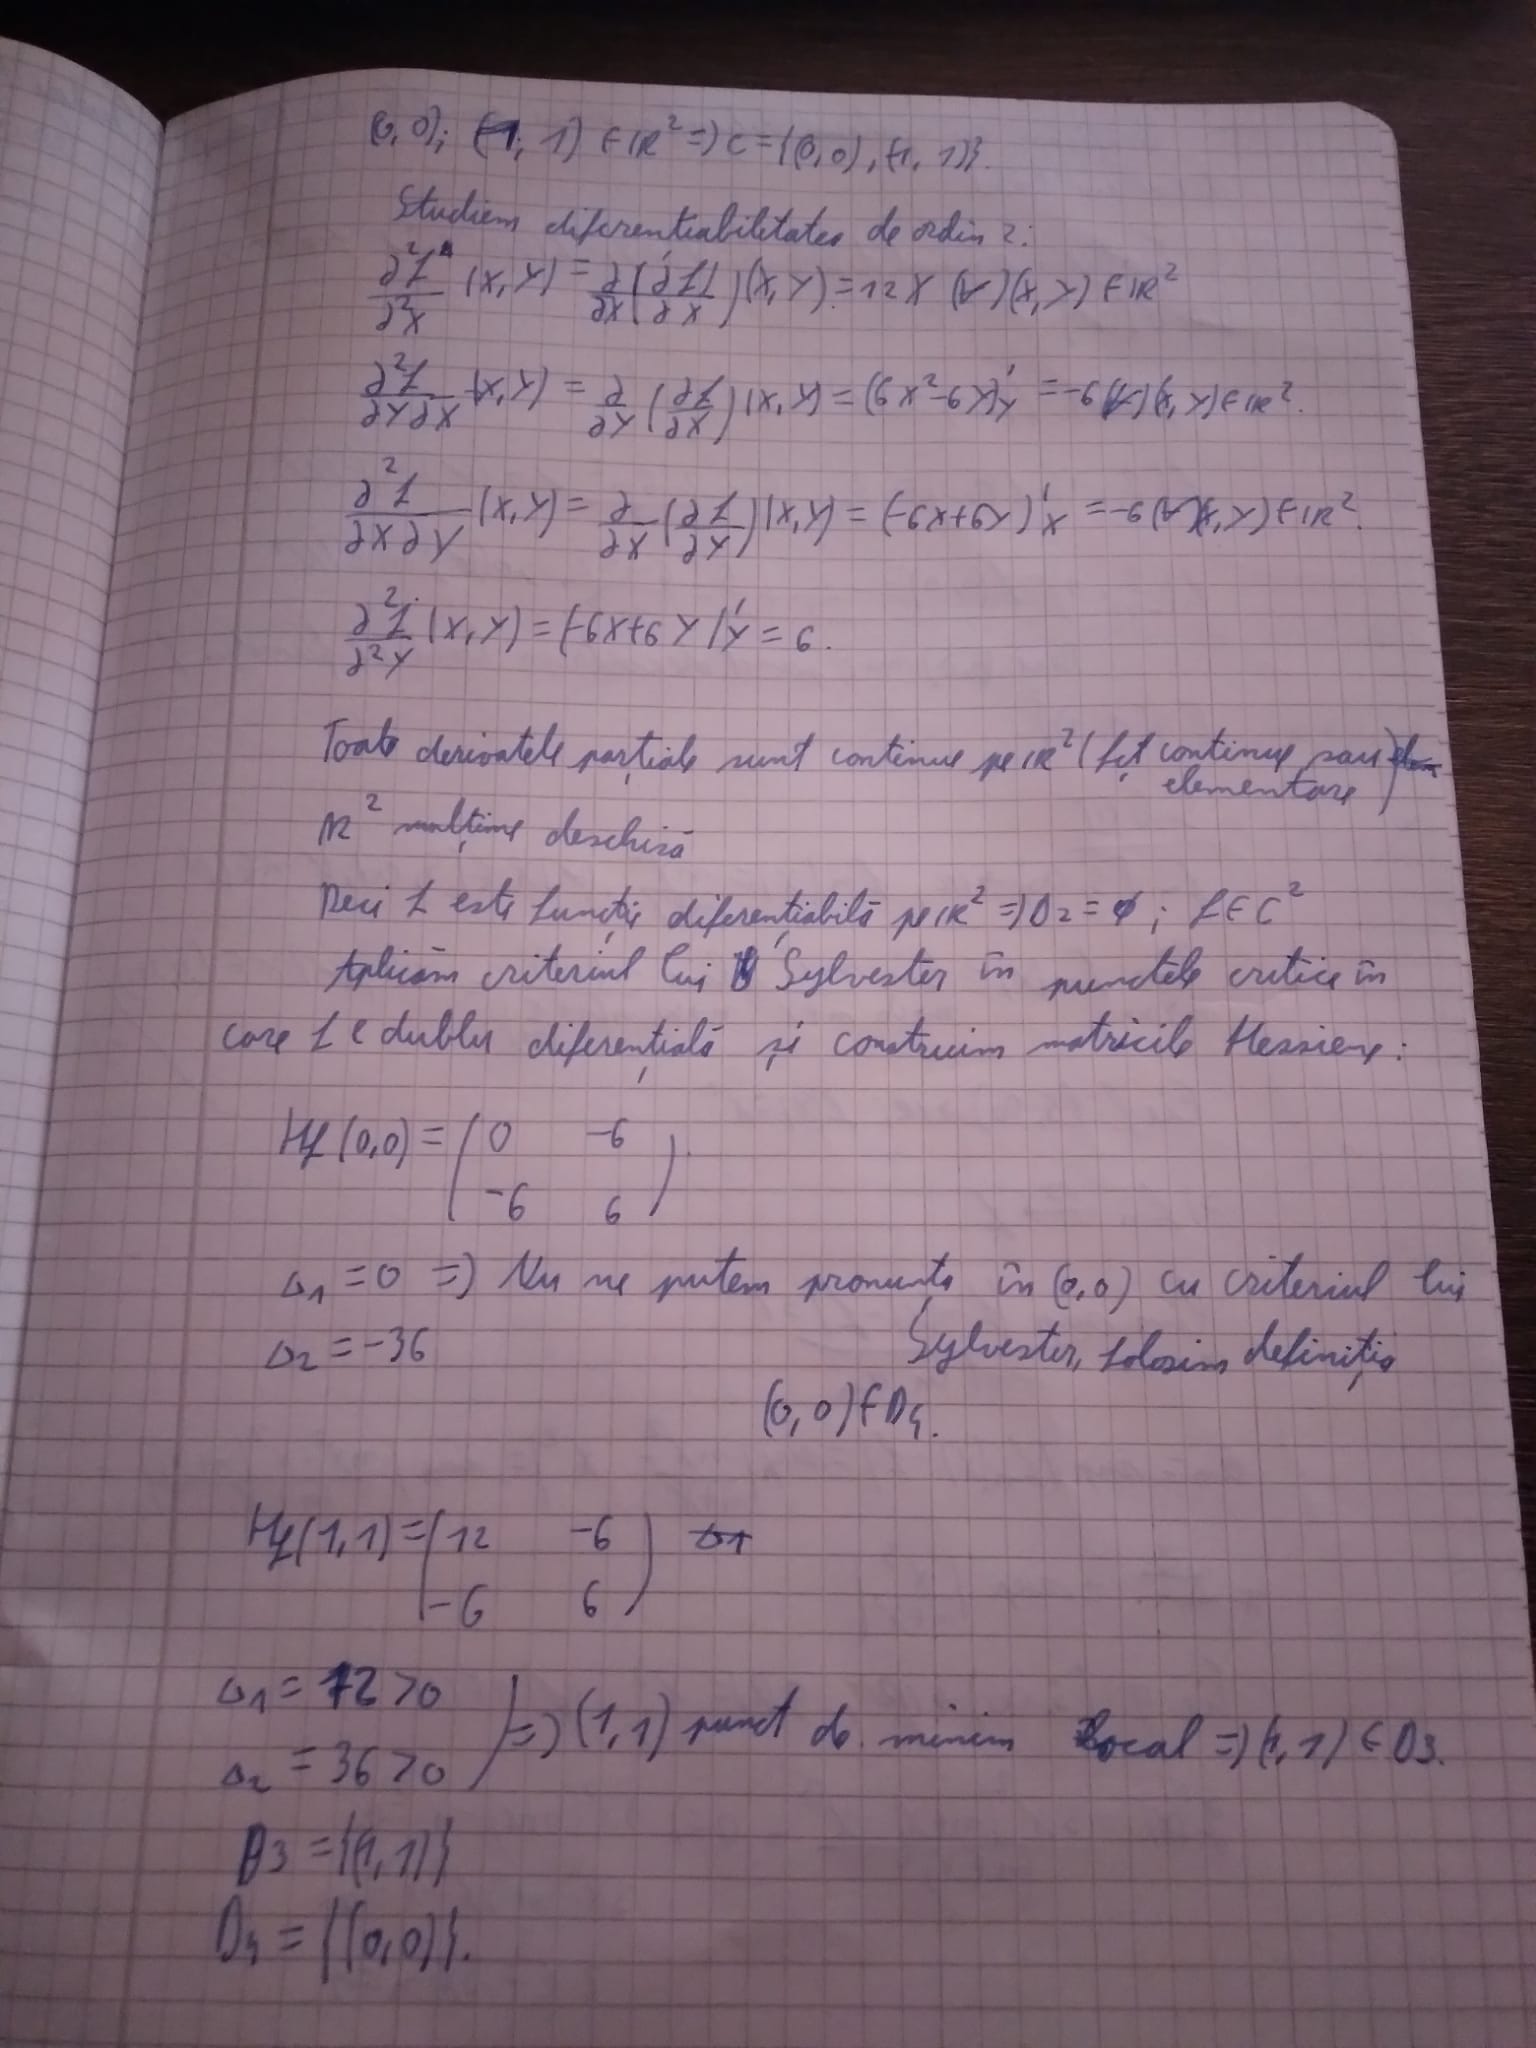 (0,0); (1, 1) ∈ ℝ² => C = {(0,0), (1, 1)}.
Studiem diferentiabilitatea de ordin 2:
∂²f/∂²x (x,y) = ∂/∂x (∂f/∂x) (x,y) = 12x (∀)(x,y) ∈ ℝ²
∂²f/∂y∂x (x,y) = ∂/∂y (∂f/∂x) (x,y) = (6x²-6y)'y = -6 (∀)(x,y) ∈ ℝ².
∂²f/∂x∂y (x,y) = ∂/∂x (∂f/∂y) (x,y) = (-6x+6y)'x = -6 (∀)(x,y) ∈ ℝ².
∂²f/∂²y (x,y) = (-6x+6y)'y = 6.
Toate derivatele parțiale sunt continue pe ℝ² (fct continue sau
elementare)
ℝ² mulțime deschisă
Deci f este funcție diferențiabilă pe ℝ² => D2 = ∅; f ∈ C²
Aplicăm criteriul lui Sylvester în punctele critice în
care f e dublu diferențială și construim matricile Hessiene:
Hf (0,0) = (0 -6
-6 6)
Δ1 = 0 => Nu ne putem pronunța în (0,0) cu criteriul lui
Δ2 = -36 Sylvester, folosim definiția
(0,0) ∈ D4.
Hf (1,1) = (12 -6
-6 6)
Δ1 = 12 > 0
Δ2 = 36 > 0 => (1,1) punct de minim local => (1,1) ∈ D3.
D3 = {(1,1)}
D4 = {(0,0)}.